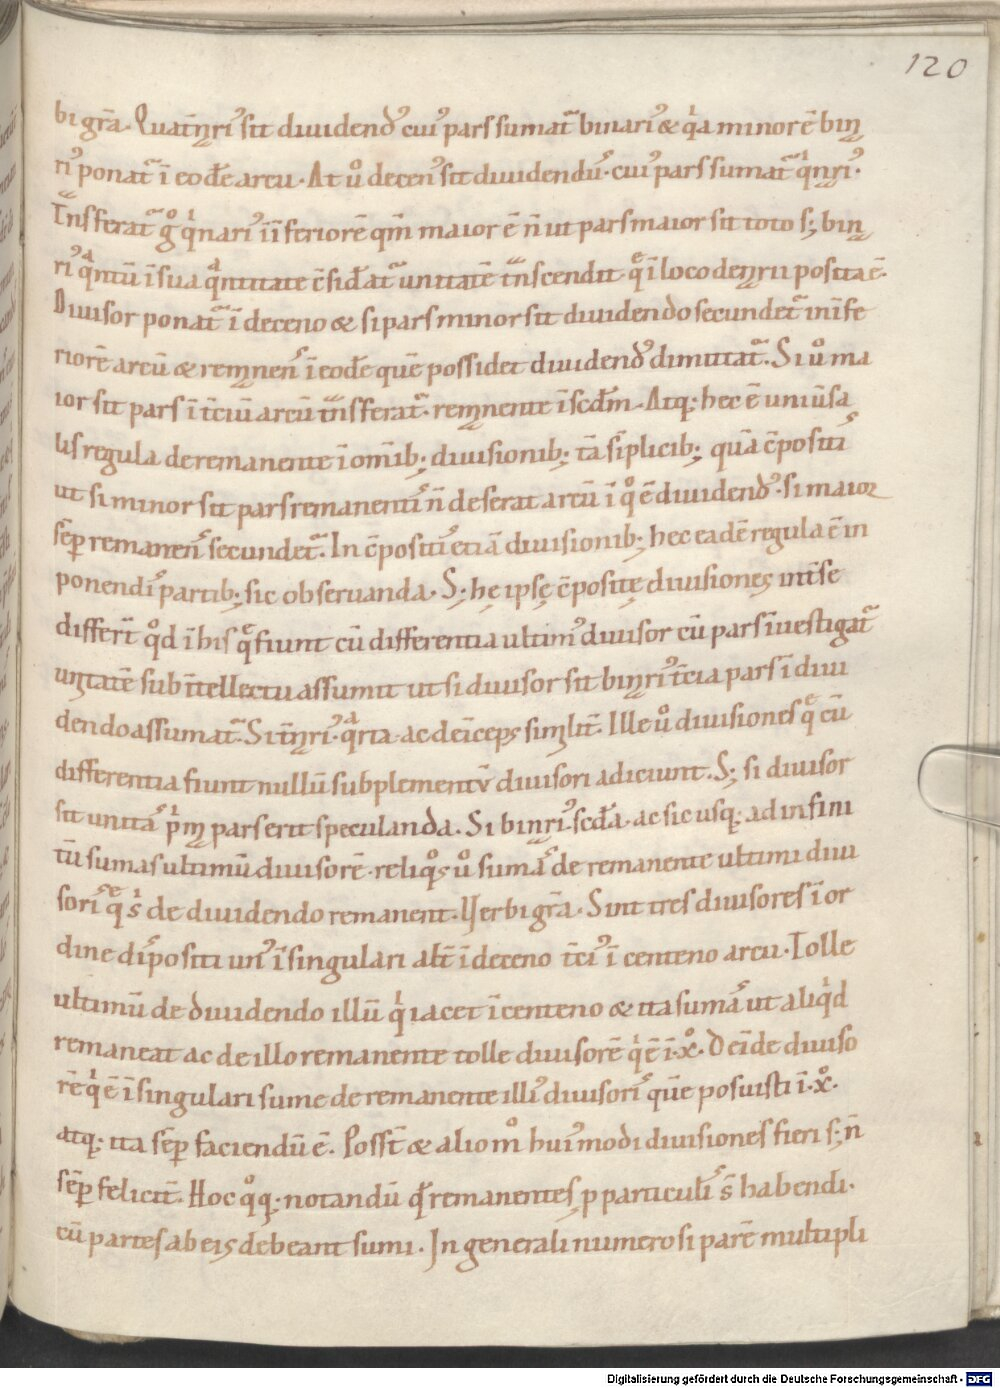 120
bi gr̄a. Quat̄n̄ri᾽ sit diuidend᾽ cui᾽ pars sumat᷑ binari᾽ & q̍a minor ē bin̄
ri᾽ ponat᷑ ī eod̄e arcu. At u̇ deceni᾽ sit diuidendū. cui᾽ pars sumat᷑ q̍n̄ri᾽.
T̄nsferat᷑ g̊ q̍nari᾽ ī īferiorē qm̄ maior ē n̄ ut pars maior sit toto s; bin̄
ri᾽ qͣntū ī sua qͣntitate c̄sid̄at᷑ unitatē t̄nscendit q̄ ī loco den̄rii posita ē.
Diuisor ponat᷑ ī deceno & si pars minor sit diuidendo secundet᷑ in īfe
riorē arcū & rem̄nens ī eod̄e quē possidet diuidend᾽ dimittat᷑. Si u̇ ma
ior sit pars ī t̄ciū arcū t̄nsferat᷑. rem̄nente ī scd̄m. Atq; hec ē uniūsa
lis regula de remanente ī om̄ib; diuisionib; tā sīplicib; quā c̄positis
ut si minor sit pars remanentis n̄ deserat arcū ī q̊ ē diuidend᾽. si maior
sēp remanens secundet᷑. In c̄positis etiā diuisionib; hec eadē regula ē in
ponendis partib; sic obseruanda. S; hę ipsę c̄positę diuisiones int̄ se
differt̄ q̊d ī his q̄ fiunt cū differentia ultim᾽ diuisor cū pars īuestigat᷑
un̄tatē sub ītellectu assumit ut si diuisor sit bin̄ri᾽ t̄cia pars ī diui
dendo assumat᷑. Si t̄n̄ri᾽ qͣrta. ac deīceps sim̄lit̄. Ille u̇ diuisiones q̄ cū
differentia fiunt nullū subplementv̄ diuisori adiciunt. S; si diuisor
sit unitas p̍m̄ pars erit speculanda. Si bin̄ri᾽. scd̄a. ac sic usq; ad infini
tū sumas ultimū diuisorē. reliq̊s u̇ sumas de remanente ultimi diui
soris q̄ s̍ de diuidendo remanent. Verbi gr̄a. Sint tres diuisores ī or
dine dispositi un᾽ ī singulari alt̄ ī deceno t̄ci᾽ ī centeno arcu. Tolle
ultimū de diuidendo illū q̍ iacet ī centeno & ita sumas ut aliq̍d
remaneat ac de illo remanente tolle diuisorē q̍ ē ī .x̊. Deīde diuiso
rē q̍ ē ī singulari sume de remanente illi᾽ diuisoris quē posuisti ī .x̊.
atq; ita sēp faciendū ē. Posst̄ & alio m̊ hui᾽modi diuisiones fieri s; n̄
sēp felicit̄. Hoc q̊q; notandū qd̄ remanentes p particulis s̄ habendi.
cū partes ab eis debeant sumi. In generali numero si parē multipli
Digitalisierung gefördert durch die Deutsche Forschungsgemeinschaft - DFG